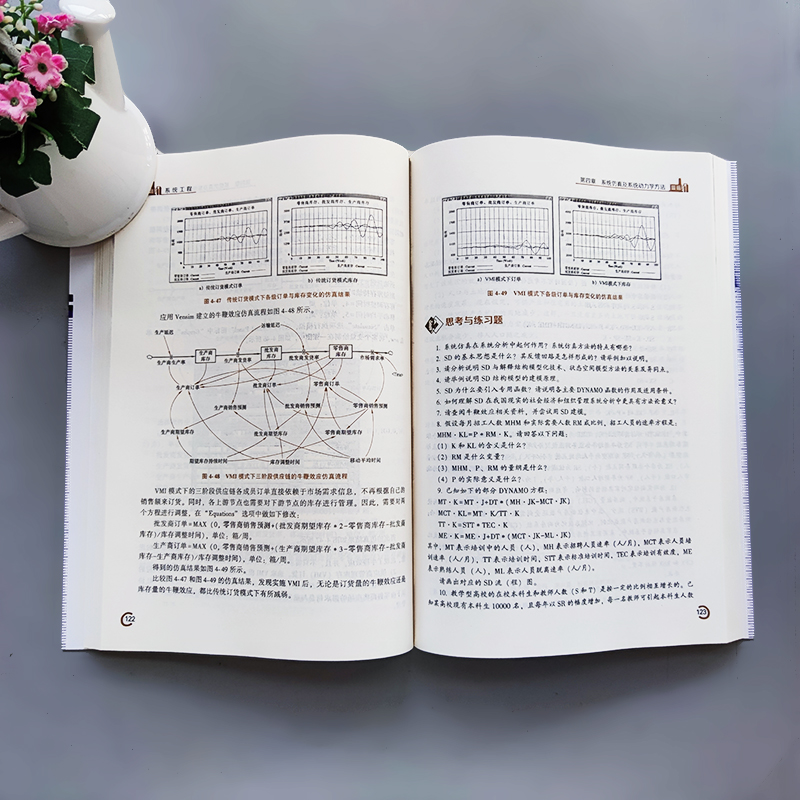 系统工程
a) 传统订货模式订单
b) 传统订货模式库存
图 4-47 传统订货模式下各级订单与库存变化的仿真结果
应用 Vensim 建立的牛鞭效应仿真流程如图 4-48 所示。
生产延迟
运输延迟
生产商生产率
生产商库存
生产商发货率
批发商库存
批发商发货率
零售商库存
市场需求率
<Time>
生产商订单
批发商订单
零售商订单
生产商销售预测
批发商销售预测
零售商销售预测
生产商期望库存
批发商期望库存
零售商期望库存
期望库存持续时间
库存调整时间
移动平均时间
图 4-48 VMI 模式下三阶段供应链的牛鞭效应仿真流程
VMI 模式下的三阶段供应链各成员订单直接依赖于市场需求信息，不再根据自己的
销售额来订货，同时，各上游节点也需要对下游节点的库存进行管理。因此，需要对两
个方程进行调整，在“Equations”选项中做如下修改：
批发商订单=MAX (0, 零售商销售预测+(批发商期望库存*2-零售商库存-批发商
库存)/库存调整时间)，单位：箱/周。
生产商订单=MAX (0, 零售商销售预测+(生产商期望库存*3-零售商库存-批发商
库存-生产商库存)/库存调整时间)，单位：箱/周。
得到的仿真结果如图 4-49 所示。
比较图 4-47 和图 4-49 的仿真结果，发现实施 VMI 后，无论是订货量的牛鞭效应还是
库存量的牛鞭效应，都比传统订货模式下有所减弱。
122
第四章 系统仿真及系统动力学方法
a) VMI模式下订单
b) VMI模式下库存
图 4-49 VMI 模式下各级订单与库存变化的仿真结果
思考与练习题
1. 系统仿真在系统分析中起何作用？系统仿真方法的特点有哪些？
2. SD 的基本思想是什么？其反馈回路是怎样形成的？请举例加以说明。
3. 请分析说明 SD 与解释结构模型化技术、状态空间模型方法的关系及异同点。
4. 请举例说明 SD 结构模型的建模原理。
5. SD 为什么要引入专用函数？请说明各主要 DYNAMO 函数的作用及适用条件。
6. 如何理解 SD 在我国现实的社会经济和组织管理系统分析中更具有方法论意义？
7. 请查阅牛鞭效应相关资料，并尝试用 SD 建模。
8. 假设每月招工人数 MHM 和实际需要人数 RM 成比例，招工人员的速率方程是：
MHM·KL=P*RM·K。请回答以下问题：
(1) K 和 KL 的含义是什么？
(2) RM 是什么变量？
(3) MHM、P、RM 的量纲是什么？
(4) P 的实际意义是什么？
9. 已知如下的部分 DYNAMO 方程：
MT·K=MT·J+DT*(MH·JK-MCT·JK)
MCT·KL=MT·K/TT·K
TT·K=STT*TEC·K
ME·K=ME·J+DT*(MCT·JK-ML·JK)
其中，MT 表示培训中的人员（人），MH 表示招聘人员速率（人/月），MCT 表示人员培
训速率（人/月），TT 表示培训时间，STT 表示标准培训时间，TEC 表示培训有效度，ME
表示熟练人员（人），ML 表示人员脱离速率（人/月）。
请画出对应的 SD 流（程）图。
10. 教学型高校的在校本科生和教师人数（S 和 T）是按一定的比例相互增长的。已
知某高校现有本科生 10000 名，且每年以 SR 的幅度增加，每一名教师可引起本科生人数
123